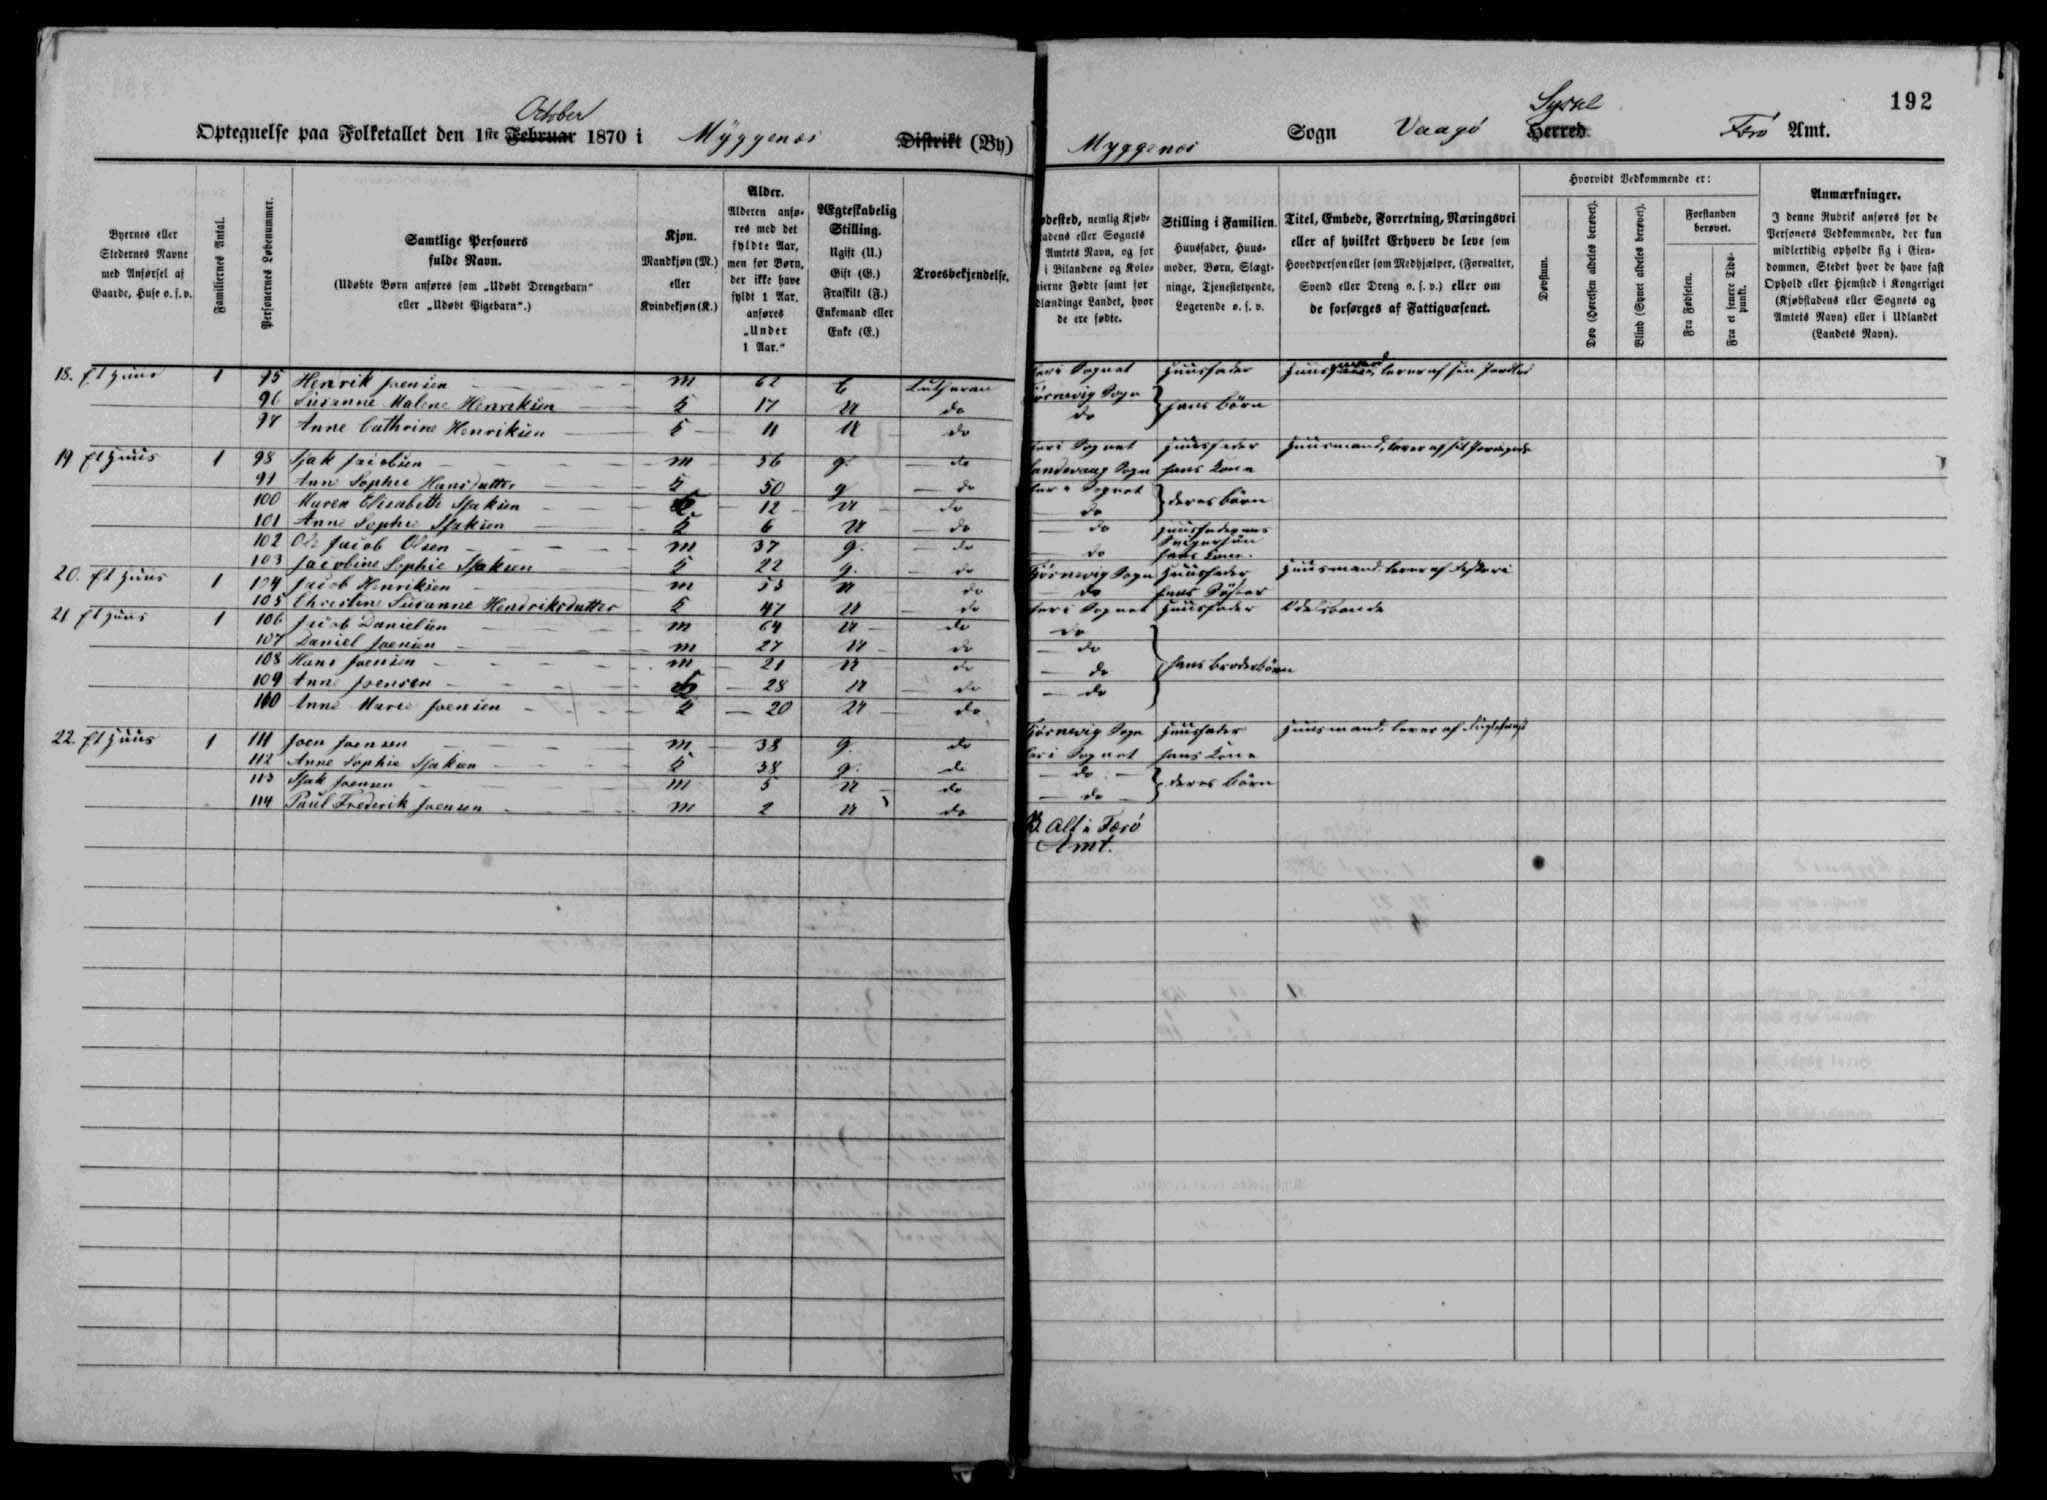 192
October
Syssel
Optegnelse paa Folketallet den 1ste Februar 1870 i Myggenæs Distrikt (By) Myggenæs Sogn Vaagø Herred. Færø Amt.
Byernes eller Stedernes Navne med Anførsel af Gaarde, Huse o. s. v.
Familiernes Antal.
Personernes Løbenummer.
Samtlige Personers fulde Navn.
(Udøbte Børn anføres som „Udøbt Drengebarn“ eller „Udøbt Pigebarn“.)
Kjøn. Mandkjøn (M.) eller Kvindekjøn (K.)
Alder. Alderen anføres med det fyldte Aar, men for Børn, der ikke have fyldt 1 Aar, anføres „Under 1 Aar.“
Ægteskabelig Stilling. Ugift (U.) Gift (G.) Fraskilt (F.) Enkemand eller Enke (E.)
Troesbekjendelse.
Fødested, nemlig Kjøbstadens eller Sognets og Amtets Navn, og for i Bilandene og Kolonierne Fødte samt for Udlændinge Landet, hvor de ere fødte.
Stilling i Familien. Huusfader, Huusmoder, Børn, Slægtninge, Tjenestetyende, Logerende o. s. v.
Titel, Embede, Forretning, Næringsvei eller af hvilket Erhverv de leve som Hovedperson eller som Medhjælper, (Forvalter, Svend eller Dreng o. s. v.) eller om de forsørges af Fattigvæsenet.
Hvorvidt Vedkommende er:
Døvstum.
Døv (Hørelsen aldeles berøvet).
Blind (Synet aldeles berøvet).
Forstanden berøvet.
Fra Fødselen.
Fra et senere Tidspunkt.
Anmærkninger. I denne Rubrik anføres for de Personers Vedkommende, der kun midlertidig opholde sig i Eiendommen, Stedet hvor de have fast Ophold eller Hjemsted i Kongeriget (Kjøbstadens eller Sognets og Amtets Navn) eller i Udlandet (Landets Navn).
18. Et Huus 1 95 Henrik Joensen M 62 E Luthersk her i Sognet Huusfader Huusmand, lever af sin Jordlod
96 Susanne Malene Henriksen K 17 U do Tjørnevig Sogn } hans Børn
97 Anne Cathrine Henriksen K 11 U do do
19 Et Huus 1 98 Sjak Jacobsen M 56 G. do her i Sognet Huusfader Huusmand, lever af sit
99 Anne Sophie Hansdatter K 50 G do Sandevaag Sogn hans Kone
100 Maren Elisabeth Sjaksen K 12 U do her i Sognet } deres Børn
101 Anne Sophie Sjaksen K 6 U do do
102 Ole Jacob Olsen M 37 G. do do Huusfaderens Svigersøn
103 Jacobine Sophie Sjaksen K 22 G. do do hans Kone.
20. Et Huus 1 104 Jacob Henriksen M 53 U do Tjørnevig Sogn Huusfader Huusmand. lever af Fiskeri
105 Christine Susanne Hendriksdatter K 47 U do do hans Søster
21 Et Huus 1 106 Jacob Danielsen M 64 U do her i Sognet Huusfader Odelsbonde
107 Daniel Joensen M 27 U do do } hans Broderbørn
108 Hans Joensen M 21 U do do
109 Anne Joensen K 28 U do do
110 Anne Marie Joensen K 20 U do do
22. Et Huus 1 111 Joen Joensen M 38 G. do Tjørnevig Sogn Huusfader Huusmand, lever af Fuglefangst
112 Anne Sophie Sjaksen K 38 G. do her i Sognet hans Kone
113 Sjak Joensen M 5 U do do } deres Børn
114 Paul Frederik Joensen M 2 U do do
Alt i Færø
Amt.